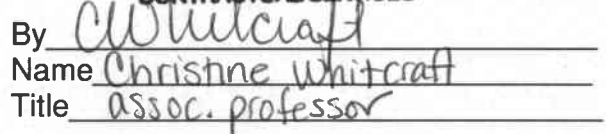 By CWhitcraft
Name Christine Whitcraft
Title assoc. professor